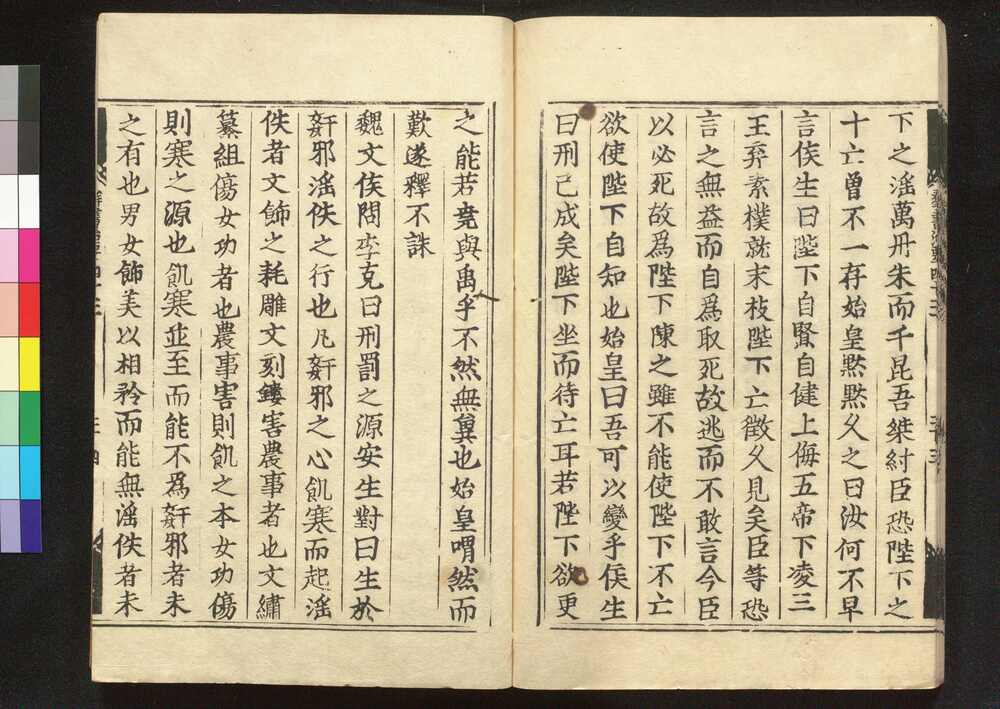 下之淫萬丹朱而千昆吾桀紂臣恐陛下之
十亡曽不一存始皇黙黙久之曰汝何不早
言侯生曰陛下自賢自健上侮五帝下凌三
王弃素樸就末枝陛下亡徴久見矣臣等恐
言之無益而自爲取死故逃而不敢言今臣
以必死故爲陛下陳之雖不能使陛下不亡
欲使陛下自知也始皇曰吾可以變乎侯生
曰刑已成矣陛下坐而待亡耳若陛下欲更
之能若堯與禹乎不然無冀也始皇喟然而
歎遂釋不誅
魏文侯問李克曰刑罰之源安生對曰生於
姧邪淫佚之行也凡姧邪之心飢寒而起淫
佚者文飾之耗雕文刻鏤害農事者也文繡
纂組傷女功者也農事害則飢之本女功傷
則寒之源也飢寒並至而能不爲姧邪者未
之有也男女飾美以相矜而能無淫佚者未
群書治要四十三
三四